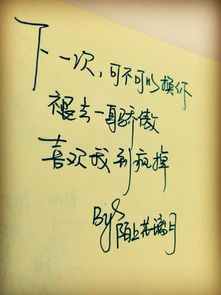 下一次,可不可以换你
褪去一身骄傲
喜欢我到疯掉
By:陌上芜漓月